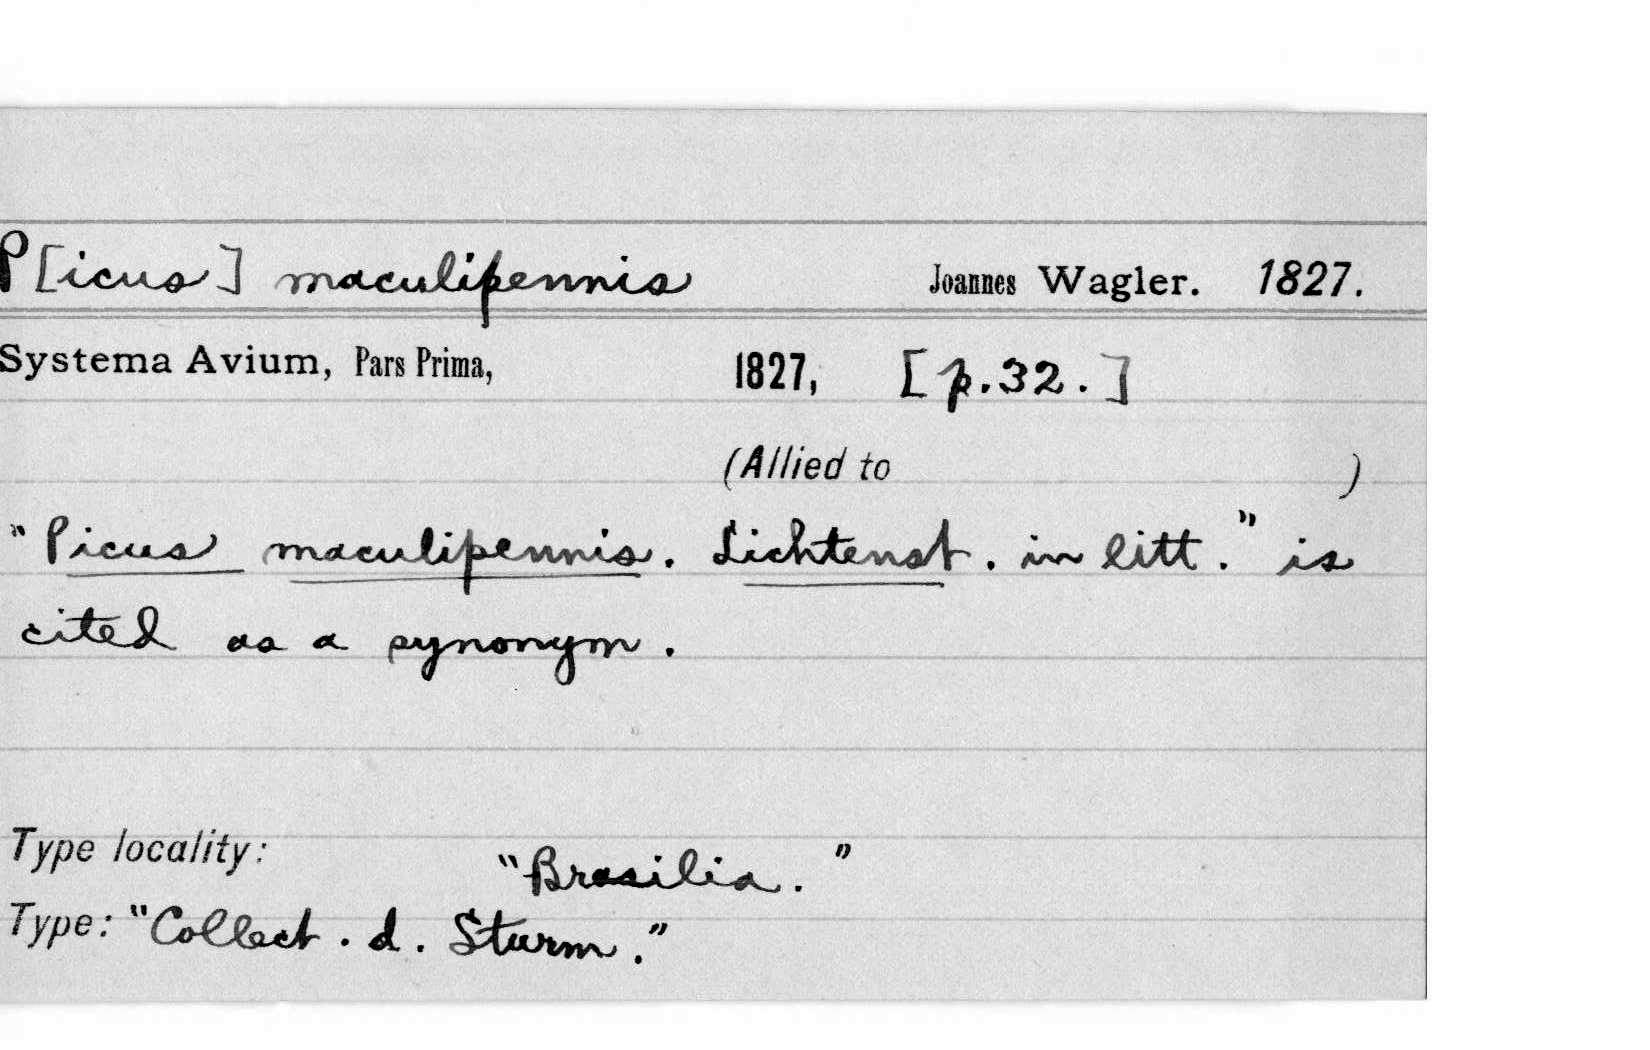 P[icus] maculipennis Joannes Wagler. 1827.
Systema Avium, Pars Prima, 1827, [p.32.]
(Allied to )
"Picus maculipennis. Lichtenst. in litt." is
cited as a synonym.
Type locality: "Brasilia."
Type: "Collect. d. Sturm."